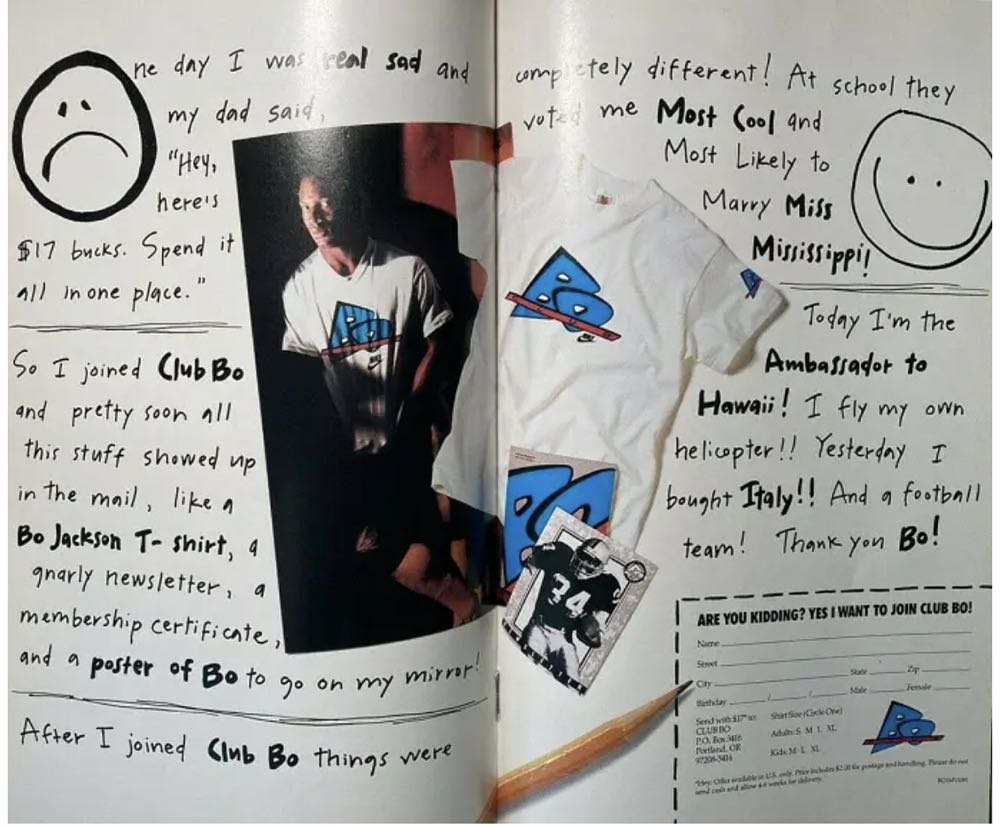 One day I was real sad and
my dad said,
"Hey,
here's
$17 bucks. Spend it
all in one place."
So I joined Club Bo
and pretty soon all
this stuff showed up
in the mail, like a
Bo Jackson T-shirt, a
gnarly newsletter, a
membership certificate,
and a poster of Bo to go on my mirror!
After I joined Club Bo things were
completely different! At school they
voted me Most Cool and
Most Likely to
Marry Miss
Mississippi!
Today I'm the
Ambassador to
Hawaii! I fly my own
helicopter!! Yesterday I
bought Italy!! And a football
team! Thank you Bo!
BO
NIKE
BO
NIKE
BO
34
ARE YOU KIDDING? YES I WANT TO JOIN CLUB BO!
Name
Street
City State Zip
Birthday / / Male Female
Send with $17* to:
CLUB BO
P.O. Box 3416
Portland, OR
97208-3416
Shirt Size (Circle One)
Adults: S M L XL
Kids: M L XL
BO
*Hey: Offer available in U.S. only. Price includes $2.00 for postage and handling. Please do not
send cash and allow 4-6 weeks for delivery.